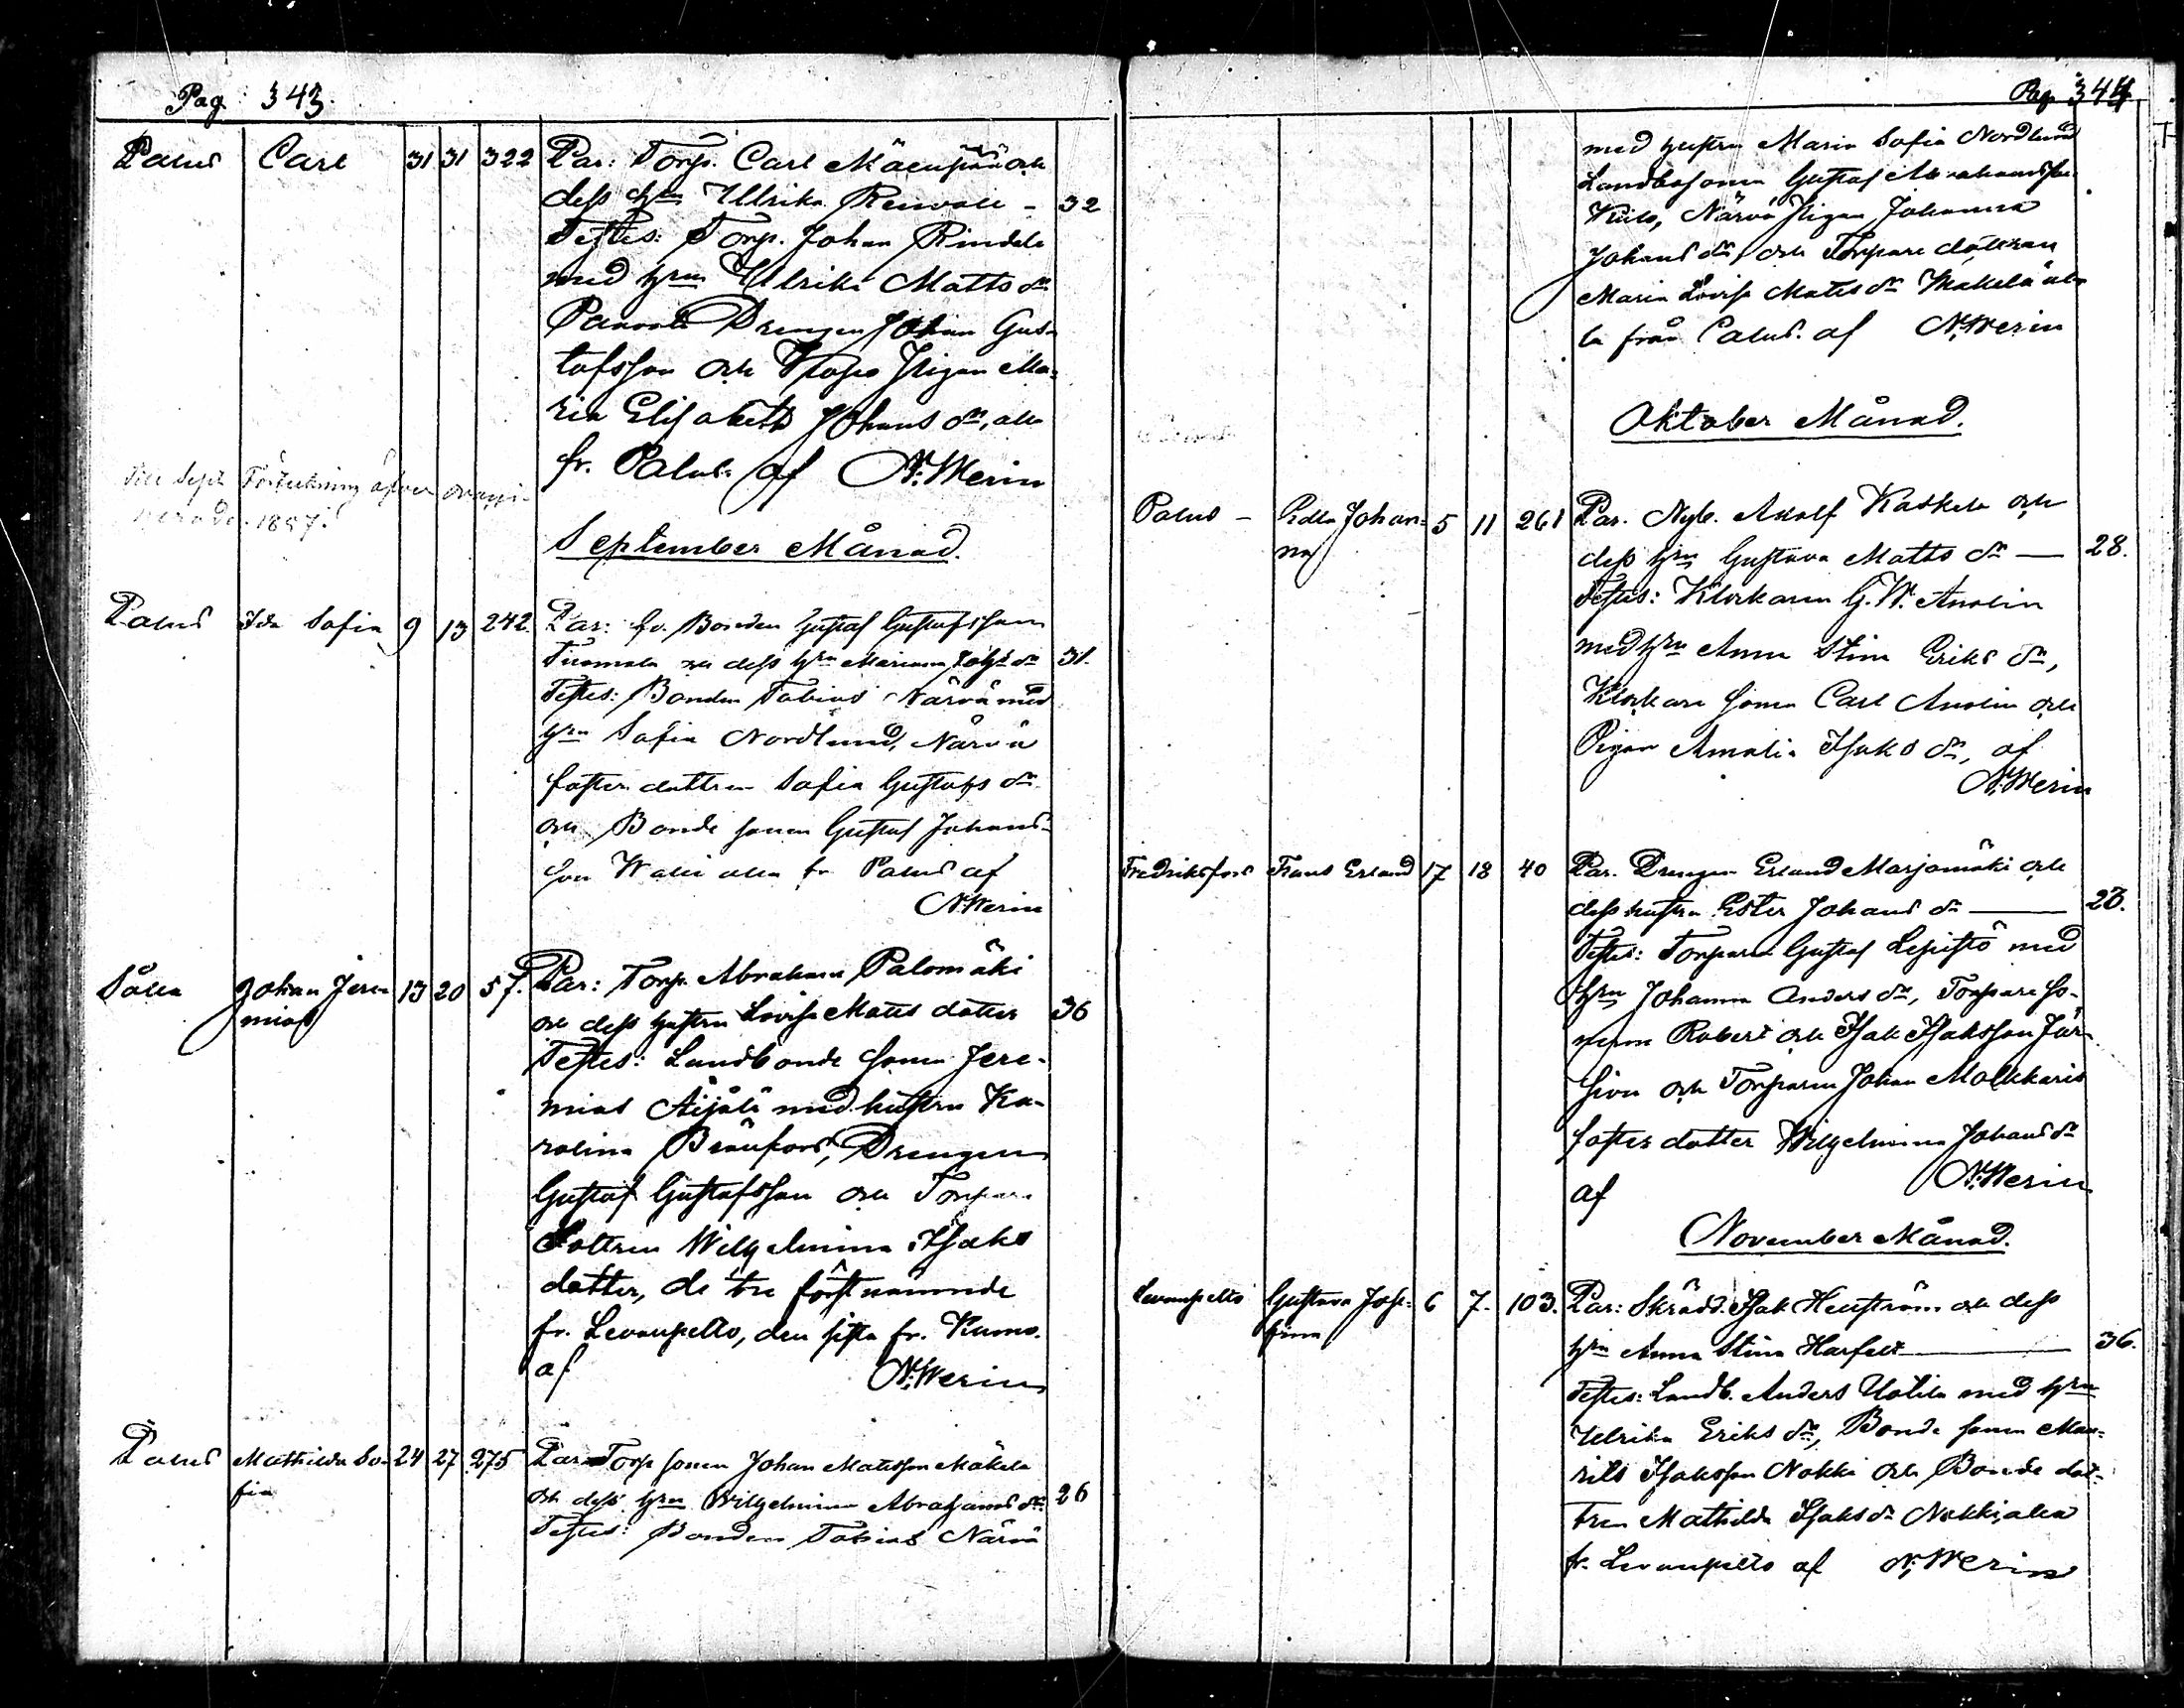 Pag. 343.
Palus Carl 31 31 322 Par: Torp. Carl Mäenpää och
dess hru Ulrika Renvall - 32
Testes: Torp. Johan Rindele
med hru Ulrika Matts dr
Drengen Johan Gus-
tafsson och Pigan Ma-
ria Elisabeth Johans dr, alla
fr. Palus. af N. Merin
Till Sept Förteckning öfver
1857.
September Månad.
Palus Ida Sofia 9 13 242. Par: fd. Bonden Gustaf Gustafsson
Tuomola och dess hru Mariana Johs dr 31.
Testes: Bonden Tobias Närvä med
hru Sofia Nordlund, Närvä
foster dottren Sofia Gustafs dr
och Bonde sonen Gustaf Johans-
son alla fr Palus af
N. Merin
Johan Jere-
mias 13 20 57. Par: Torp. Abraham Palomäki
och dess hustru Lovisa Matts dotter 36
Testes: Landbonde sonen Jere-
mias Äijälä med hustru Ka-
rolina Drengen
Gustaf Gustafsson och Torpare
Dottren Wilhelmina Isaks
dotter, de tre förstnämnde
fr. Levanpelto, den sista fr. Kumo.
af N. Merin
Palus Mathilda So-
fia 24 27 275 Par: Torp sonen Johan Matsson Mäkelä
och dess hru Wilhelmina Abrahams dr 26
Testes: Bonden Tobias Närvä
Pag. 344
med hustru Maria Sofia Nordlund
Landbosonen Gustaf Abrahamsson
Närvä Pigan Johanna
Johans dr och Torpare dottran
Maria Lovisa Matts dr Mäkelä al-
la från Palus. af N. Merin
Oktober Månad.
Palus - Edla Johan-
na 5 11 261 Par. Nyb. Adolf Kaskela och
dess hru Gustava Matts dr — 28.
Testes: Klockaren G. W. Anolin
med hru Anna Stina Eriks dr,
Klockare sonen Carl Anolin och
Pigan Amalia Isaks dr, af
N. Merin
Fredriksfors Frans Erland 17 18 40 Par. Drengen Erland Marjamäki och
dess hustru Ester Johans dr —
Testes: Torparen Gustaf Lepistö med
hru Johanna Anders dr, Torpare sö-
nerna Robert och Isak Isaksson
och Torparen Johan
foster dotter Wilhelmina Johans dr
af N. Merin
November Månad.
Levanpelto Gustava Jose-
fina 6 7. 103. Par: Skrädd. Isak Hellström och dess
hru Anna Stina Harfelt — 36.
Testes: Landb. Anders Uotila med hru
Ulrika Eriks dr, Bonde sonen Mau-
rits Isaksson Nokki och Bonde dot-
tren Mathilda Isaks dr Nokki, alla
fr. Levanpelto af N. Merin